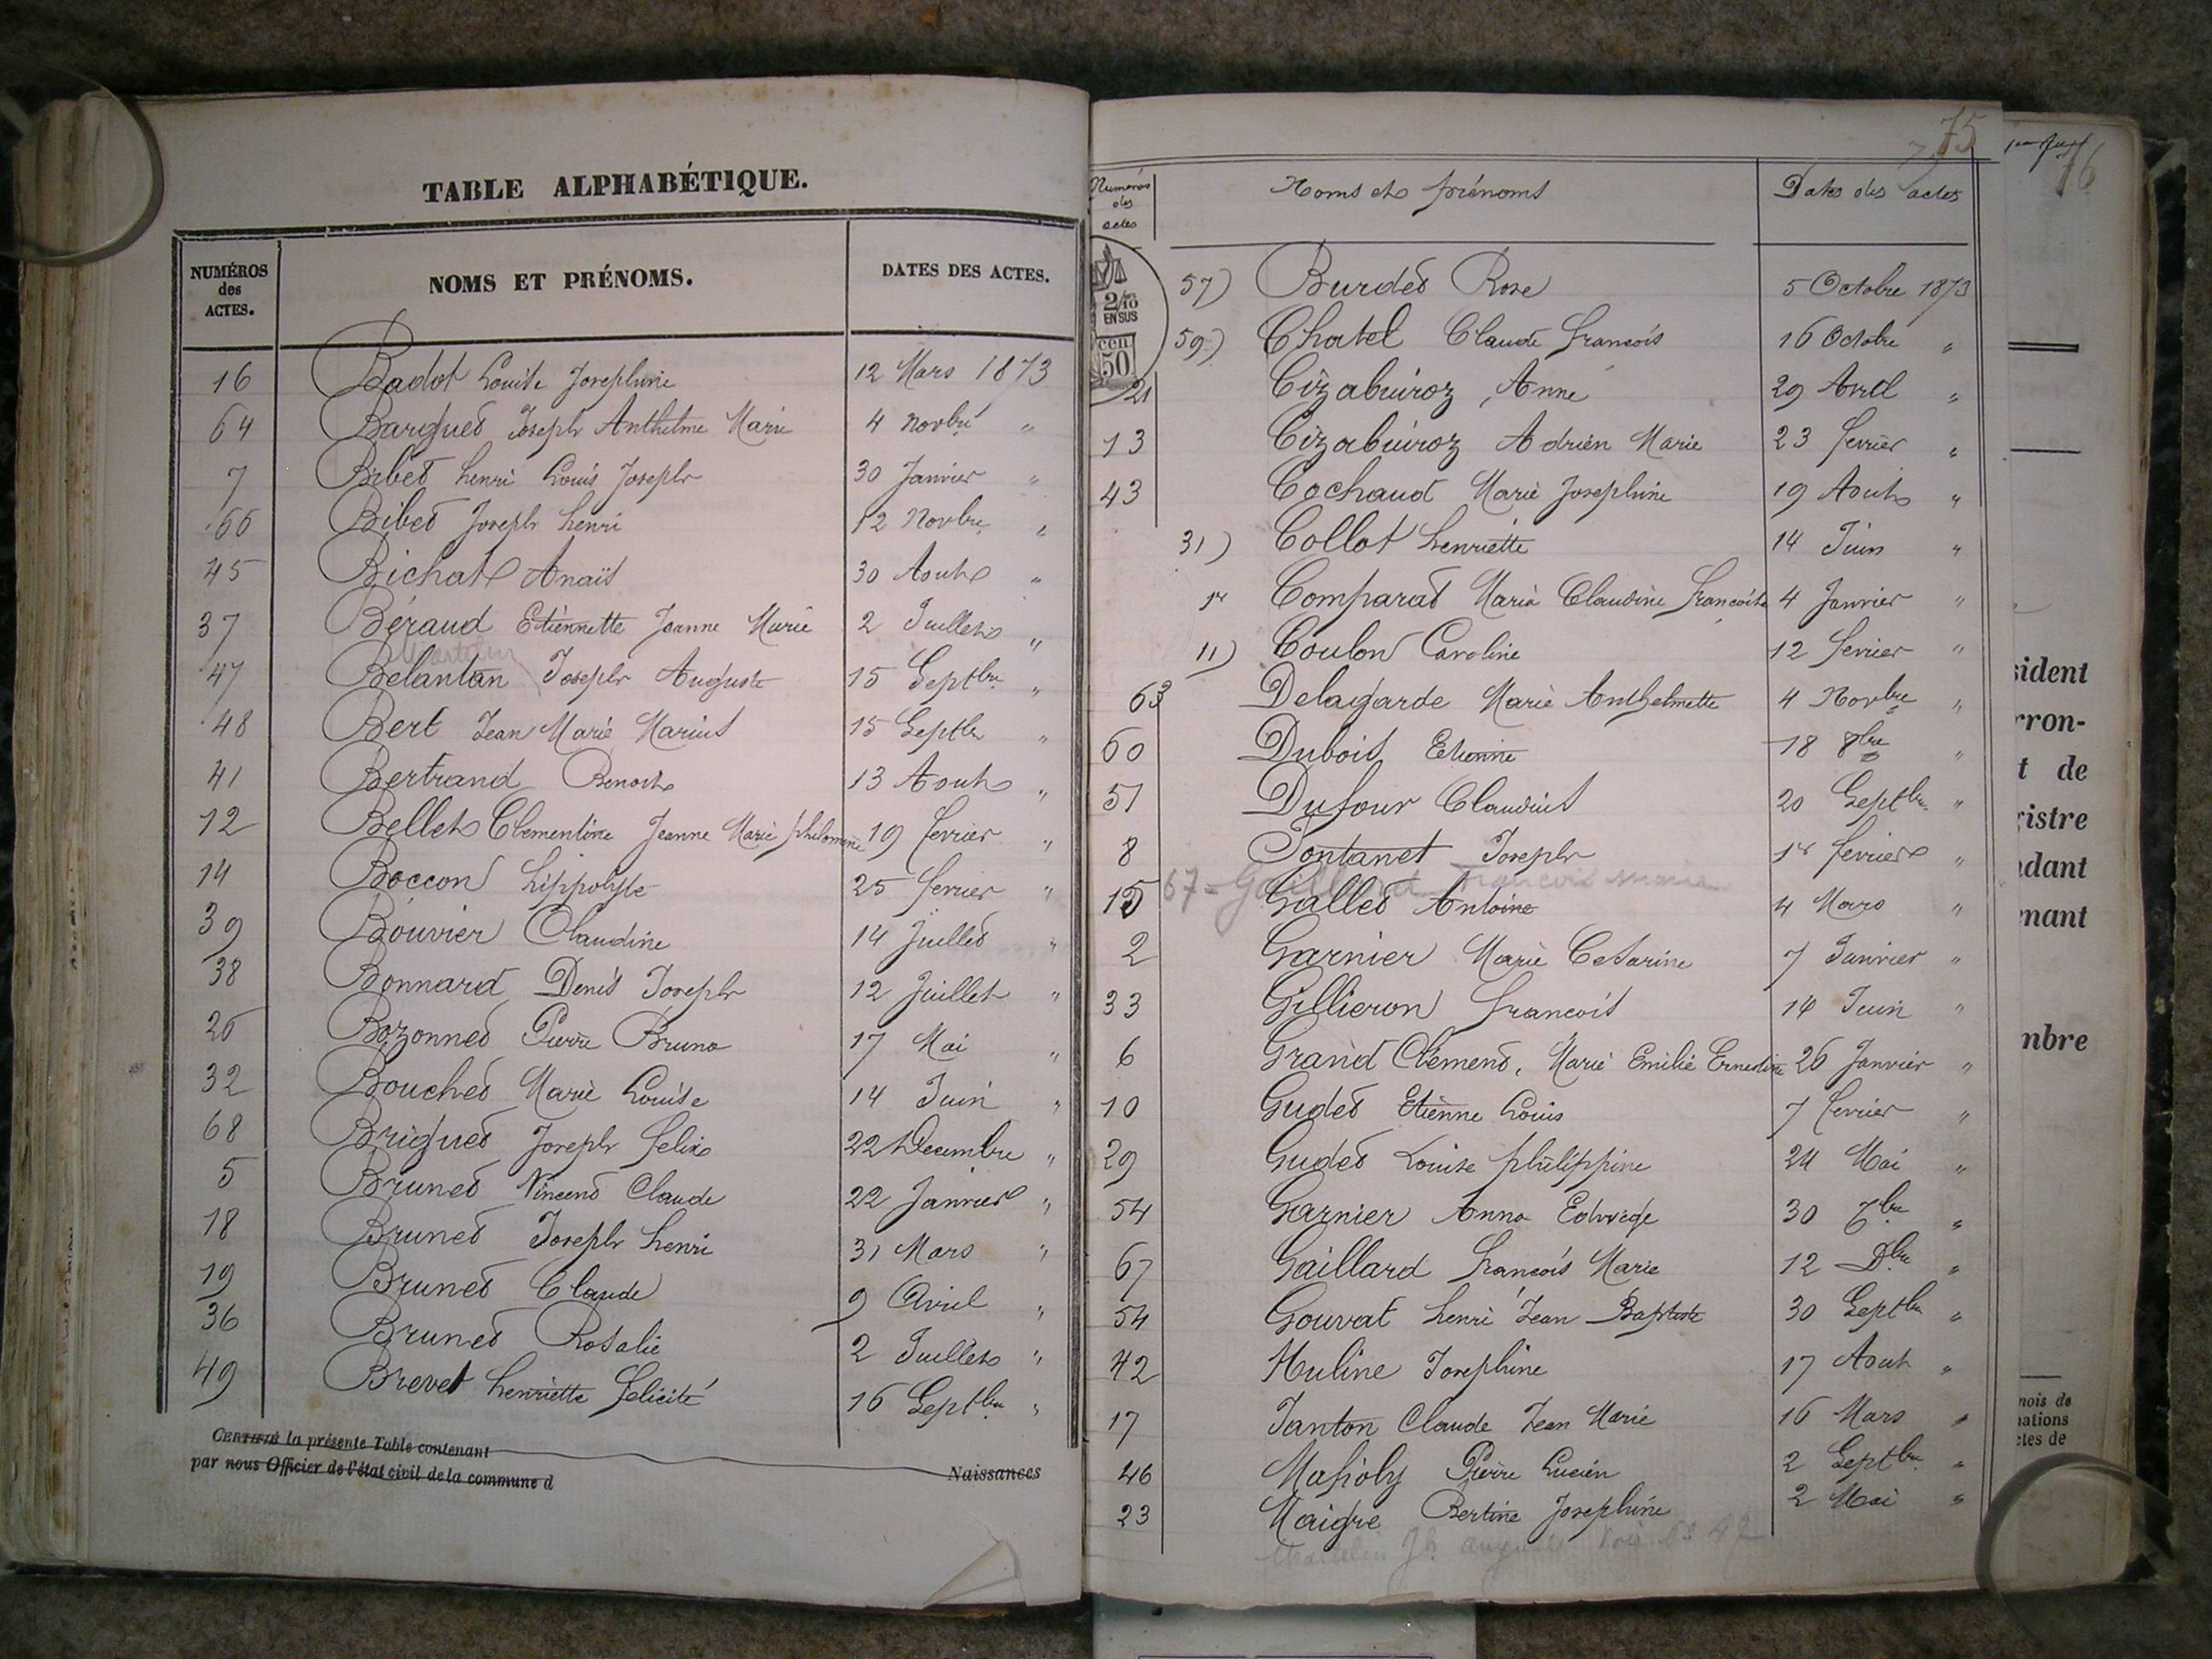 TABLE ALPHABÉTIQUE.
NUMÉROS des ACTES. NOMS ET PRÉNOMS. DATES DES ACTES.
16 Badot Louise Josephine 12 Mars 1873
64 Barquet Joseph Anthelme Marie 4 Novbre "
7 Bibet henri Louis Joseph 30 Janvier "
66 Bibet Joseph henri 12 Novbre "
45 Bichat Anaïs 30 Aout "
37 Béraud Etiennette Jeanne Marie 2 Juillet "
Martelin
47 Belantan Joseph Auguste 15 Septbre "
48 Bert Jean Marie Marius 15 Septbre "
41 Bertrand Benoit 13 Aout "
12 Bellet Clementine Jeanne Marie philomene 19 fevrier "
14 Boccon hippolyte 25 fevrier "
39 Bouvier Claudine 14 Juillet "
38 Bonnard Denis Joseph 12 Juillet "
26 Bozonnet Pierre Bruno 17 Mai "
32 Bouchet Marie Louise 14 Juin "
68 Briquet Joseph felix 22 Decembre "
5 Brunet Vincent Claude 22 Janvier "
18 Brunet Joseph henri 31 Mars "
19 Brunet Claude 9 Avril "
36 Brunet Rosalie 2 Juillet "
49 Brevet henriette felicité 16 Septbre "
CERTIFIÉ la présente Table contenant Naissances
par nous Officier de l'état civil de la commune d
75
Numéros des actes Noms et prénoms Dates des actes
2/10 EN SUS
CEN 50
57) Burdet Rose 5 Octobre 1873
59) Chatel Claude francois 16 Octobre "
21 Cizabuiroz Anne 29 Avril "
13 Cizabuiroz Adrien Marie 23 fevrier "
43 Cochaud Marie Josephine 19 Aout "
31) Collot henriette 14 Juin "
1er Comparat Maria Claudine francoise 4 Janvier "
11) Coulon Caroline 12 fevrier "
63 Delagarde Marie Anthelmette 4 Novbre "
60 Dubois Etienne 18 8bre "
51 Dufour Claudius 20 Septbre "
8 Fontanet Joseph 1er fevrier "
67 - Gaillard francois marie
15 Gallet Antoine 4 Mars "
2 Garnier Marie Cesarine 7 Janvier "
33 Gillieron francois 14 Juin "
6 Grand Clement, Marie Emilie Ernestine 26 Janvier "
10 Gudet Etienne Louis 7 fevrier "
29 Gudet Louise philippine 24 Mai "
54 Garnier Anna Edwige 30 7bre "
67 Gaillard francois Marie 12 Dbre "
54 Gouvat henri Jean Baptiste 30 Septbre "
42 Huline Josephine 17 Aout "
17 Janton Claude Jean Marie 16 Mars "
46 Mafioly Pierre Lucien 2 Septbre "
23 Maigre Bertine Josephine 2 Mai "
Martelin Jh auguste voir No 47
76
sident
rron-
t de
istre
ndant
enant
mbre
mois de
nations
ctes de